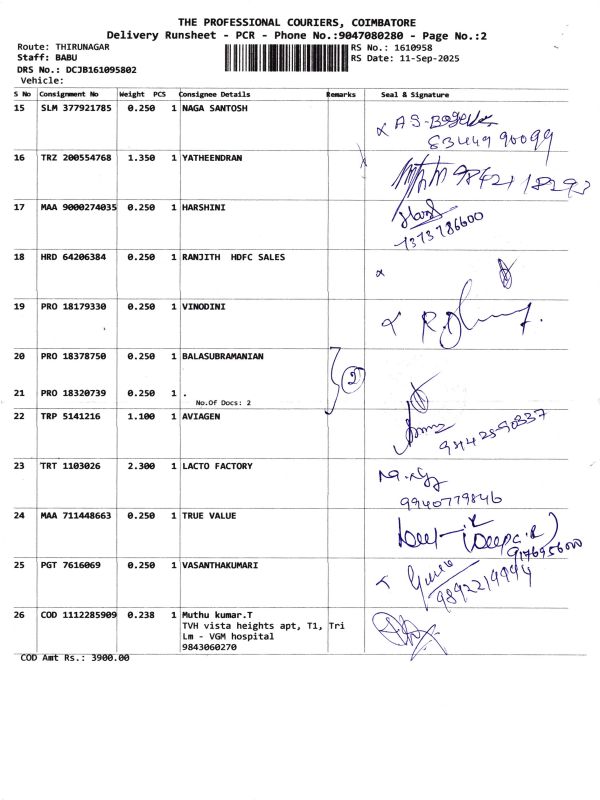 THE PROFESSIONAL COURIERS, COIMBATORE
Delivery Runsheet - PCR - Phone No.:9047080280 - Page No.:2
Route: THIRUNAGAR RS No.: 1610958
Staff: BABU RS Date: 11-Sep-2025
DRS No.: DCJB161095802
Vehicle:
S No Consignment No Weight PCS Consignee Details Remarks Seal & Signature
15 SLM 377921785 0.250 1 NAGA SANTOSH
A.S-
83449 90099
16 TRZ 200554768 1.350 1 YATHEENDRAN
98421 18293
17 MAA 9000274035 0.250 1 HARSHINI
7373786600
18 HRD 64206384 0.250 1 RANJITH HDFC SALES
19 PRO 18179330 0.250 1 VINODINI
20 PRO 18378750 0.250 1 BALASUBRAMANIAN
2
21 PRO 18320739 0.250 1 .
No.Of Docs: 2
22 TRP 5141216 1.100 1 AVIAGEN
23 TRT 1103026 2.300 1 LACTO FACTORY
9940779846
24 MAA 711448663 0.250 1 TRUE VALUE
(Deepa.R)
25 PGT 7616069 0.250 1 VASANTHAKUMARI
9892219994
26 COD 1112285909 0.238 1 Muthu kumar.T
TVH vista heights apt, T1, Tri
Lm - VGM hospital
9843060270
COD Amt Rs.: 3900.00